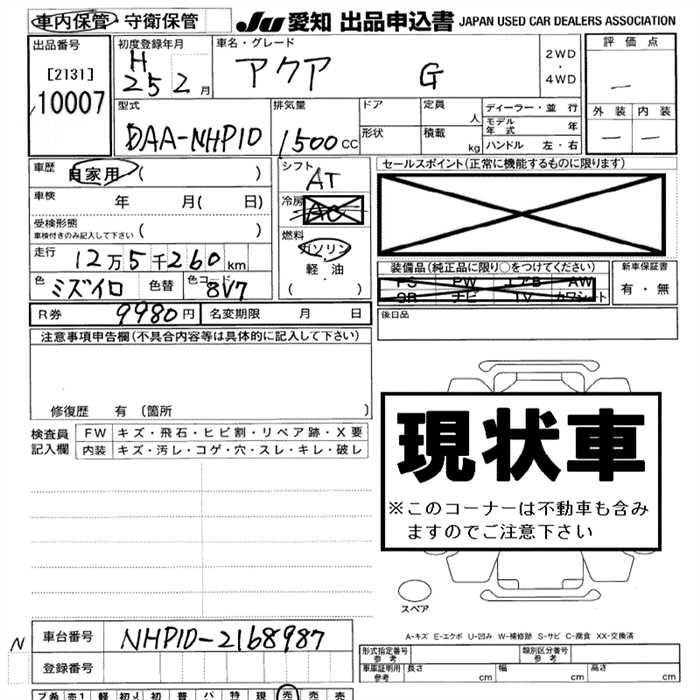 車内保管・守衛保管 JU 愛知 出品申込書 JAPAN USED CAR DEALERS ASSOCIATION
出品番号 初度登録年月 車名・グレード 評価点
[2131] H 25 2月 アクア G 2WD・4WD —
10007
型式 排気量 ドア 定員 人 ディーラー・並行 外装 内装
DAA-NHP10 1500cc 形状 積載 kg モデル年式 年 — —
ハンドル 左・右
車歴 自家用 ( ) シフト AT セールスポイント(正常に機能するものに限ります)
車検 年 月( 日) 冷房 AC
受検形態 ( )
車検付きのみ記入して下さい
燃料 ガソリン 軽油 ( ・ )
走行 12万5千260km
装備品(純正品に限り○をつけてください) 新車保証書
色 ミズイロ 色替 色コード 8V7
PS PW エアB AW 有・無
SR ナビ TV カワシート
R券 9980円 名変期限 月 日 後日品
注意事項申告欄(不具合内容等は具体的に記入して下さい)
修復歴 有 (箇所 )
検査員記入欄 FW キズ・飛石・ヒビ割・リペア跡・X要
内装 キズ・汚レ・コゲ・穴・スレ・キレ・破レ
現状車
※このコーナーは不動車も含み
ますのでご注意下さい
スペア
A-キズ E-エクボ U-凹み W-補修跡 S-サビ C-腐食 XX-交換済
N 車台番号 NHP10-2168987
登録番号
形式指定番号 参考 類別区分番号 参考
車庫証明用 参考 長さ cm 幅 cm 高さ cm